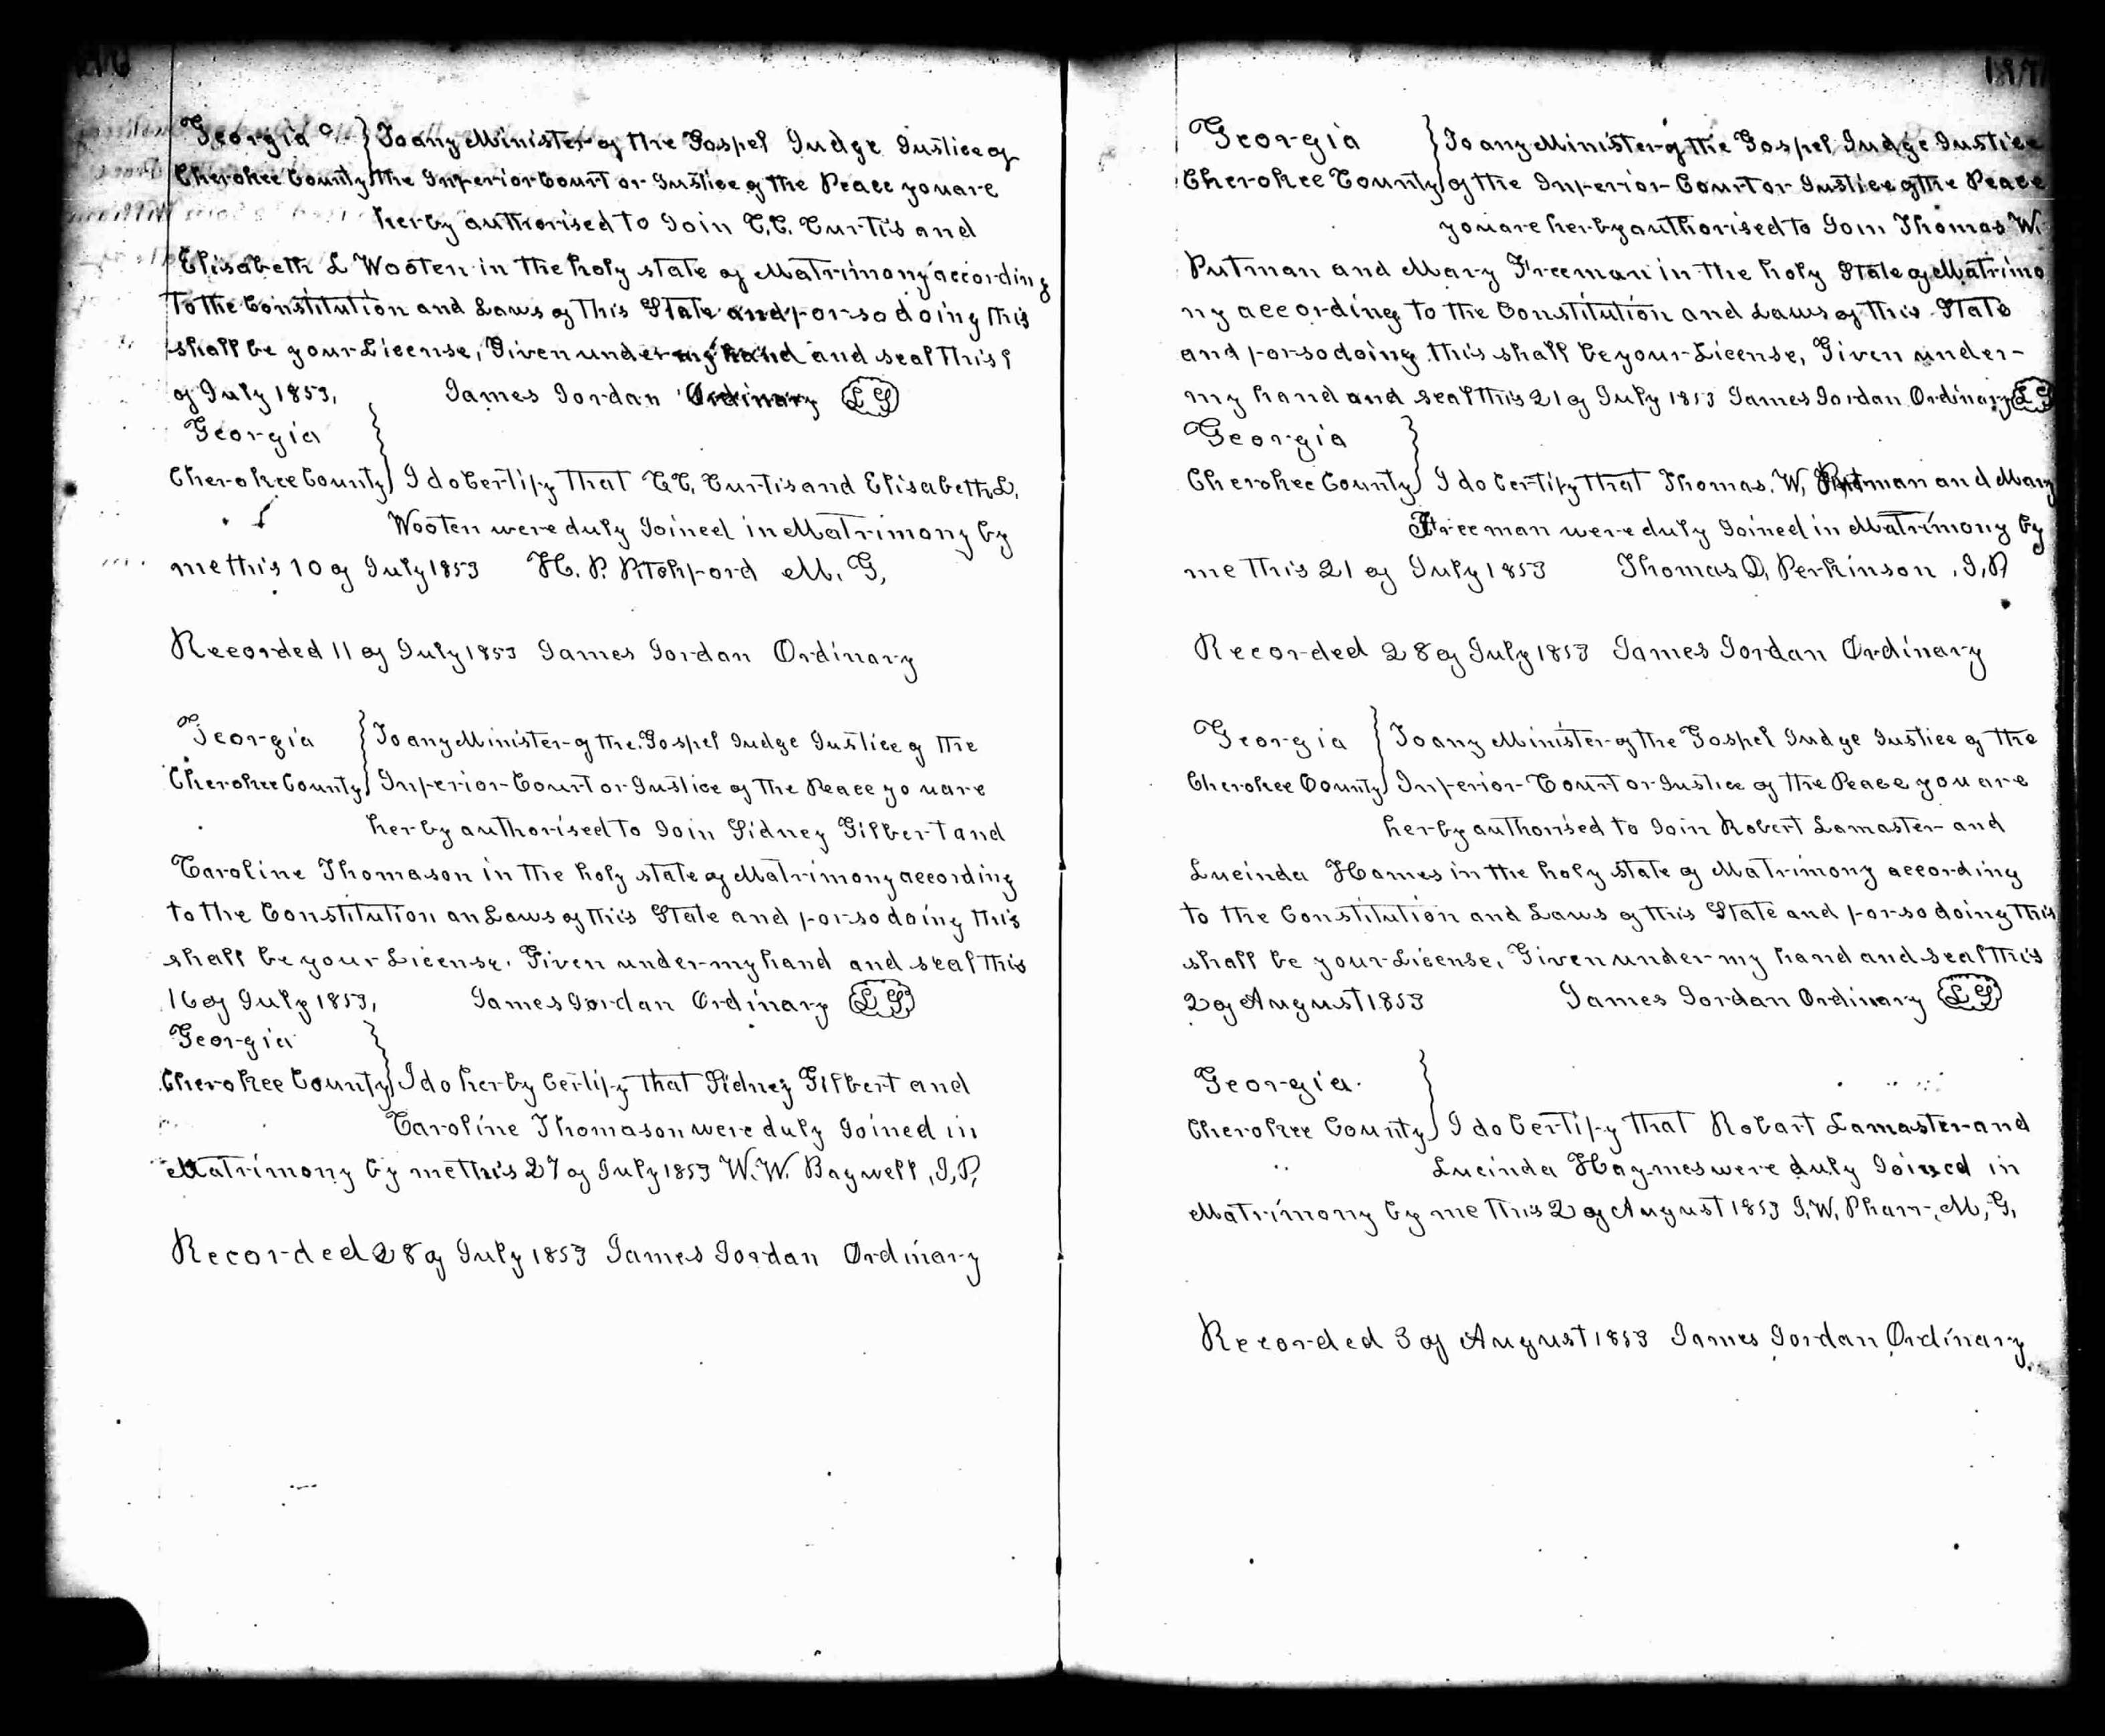 Georgia
To any Minister of the Gospel Judge Justice of
Cherokee County the Inferior Court or Justice of the Peace you are
herby authorised to Join C.C. Curtis and
Elisabeth L Wooten in the holy state of Matrimony according
to the Constitution and Laws of this State and for so doing this
shall be your License, Given under my hand and seal this 9
of July 1853, James Jordan Ordinary LS
Georgia
Cherokee County I do Certify that C.C. Curtis and Elisabeth L.
Wooten were duly Joined in Matrimony by
me this 10 of July 1853 H. P. Pitchford M. G,
Recorded 11 of July 1853 James Jordan Ordinary
Georgia To any Minister of the Gospel Judge Justice of the
Cherokee County Inferior Court or Justice of the Peace you are
herby authorised to Join Sidney Gilbert and
Caroline Thomason in the holy state of Matrimony according
to the Constitution an Laws of this State and for so doing this
shall be your License. Given under my hand and seal this
16 of July 1853, James Jordan Ordinary LS
Georgia
Cherokee County I do herby Certify that Sidney Gilbert and
Caroline Thomason were duly Joined in
Matrimony by me this 27 of July 1853 W. W. Bagwell, J,P,
Recorded 28 of July 1853 James Jordan Ordinary
Georgia To any Minister of the Gospel Judge Justice
Cherokee County of the Inferior Court or Justice of the Peace
you are herby authorised to Join Thomas W.
Putman and Mary Freeman in the holy State of Matrimo
ny according to the Constitution and Laws of this State
and for so doing this shall be your License, Given under
my hand and seal this 21 of July 1853 James Jordan Ordinary LS
Georgia
Cherokee County I do Certify that Thomas. W, Putman and Mary
Freeman were duly Joined in Matrimony by
me this 21 of July 1853 Thomas D, Perkinson, J,P
Recorded 28 of July 1853 James Jordan Ordinary
Georgia To any Minister of the Gospel Judge Justice of the
Cherokee County Inferior Court or Justice of the Peace you are
herby authorised to Join Robert Lamaster and
Lucinda Homes in the holy state of Matrimony according
to the Constitution and Laws of this State and for so doing this
shall be your License, Given under my hand and seal this
2 of August 1853 James Jordan Ordinary LS
Georgia.
Cherokee County I do Certify that Robart Lamaster and
Lucinda Haymes were duly Joined in
Matrimony by me this 2 of August 1853 J, W, Pharr, M, G,
Recorded 3 of August 1853 James Jordan Ordinary